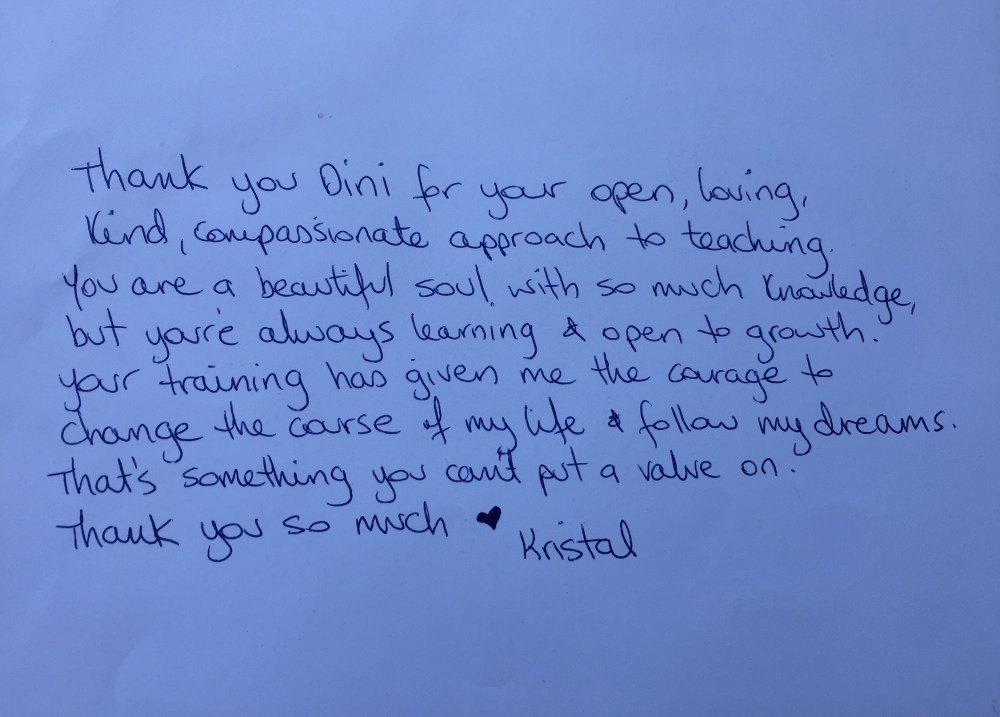 Thank you Dini for your open, loving,
kind, compassionate approach to teaching.
You are a beautiful soul, with so much knowledge,
but you're always learning & open to growth.
Your training has given me the courage to
change the course of my life & follow my dreams.
That's something you can't put a value on.
Thank you so much ♥
Kristal